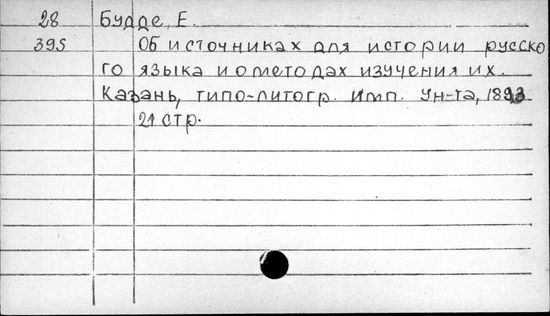 28 Будде, Е.
395 Об источниках для истории русско
го языка и о методах изучения их.
Казань, типо-литогр. Имп. Ун-та, 1893
21 стр.